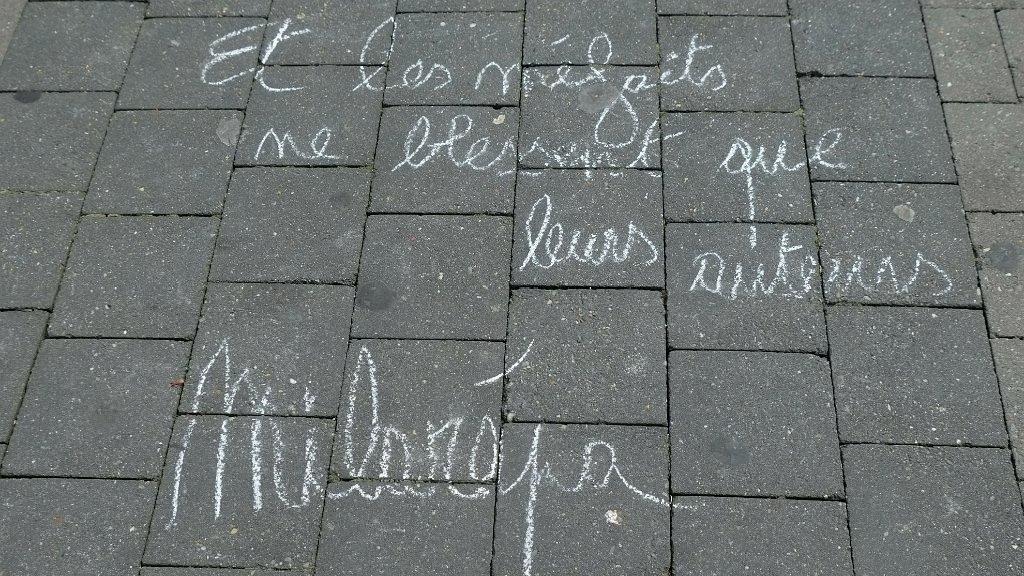 Et les méfaits
ne blessent que
leurs auteurs
Milarépa